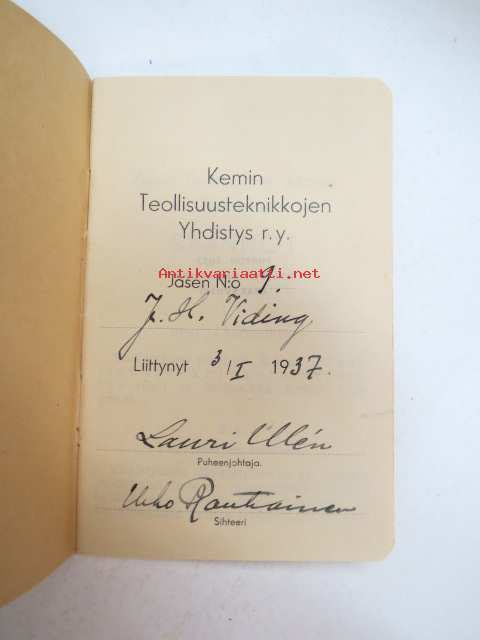 Kemin
Teollisuusteknikkojen
Yhdistys r.y.
Antikvariaatti.net
Jäsen N:o 9.
J. H. Viding
Liittynyt 3/I 1937.
Lauri Ulén
Puheenjohtaja.
Urho Rautiainen
Sihteeri